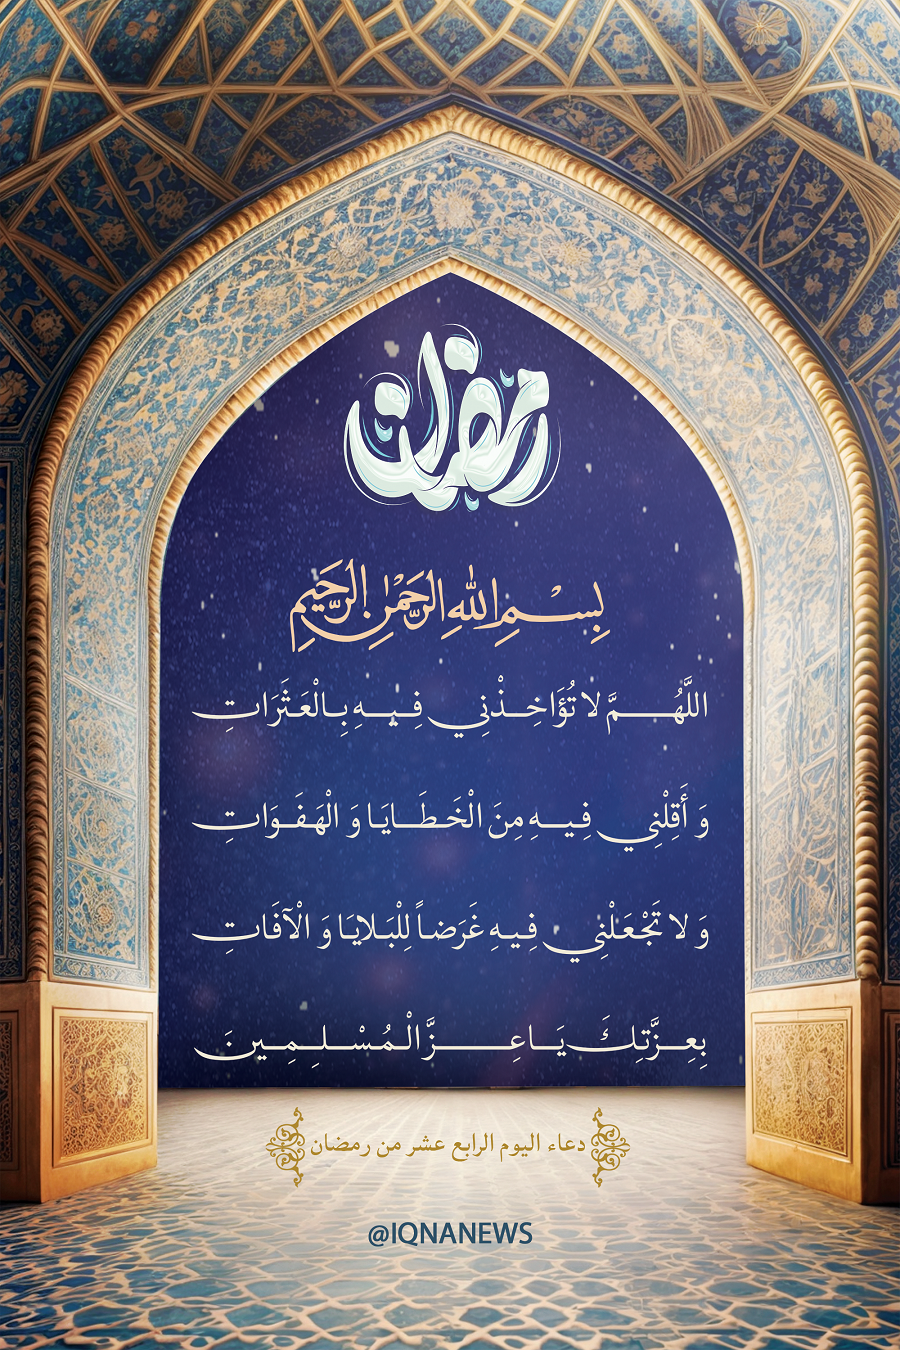 رمضان
بِسْمِ اللهِ الرَّحْمٰنِ الرَّحِيمِ
اللَّهُمَّ لا تُؤَاخِذْنِي فِيهِ بِالْعَثَرَاتِ
وَ أَقِلْنِي فِيهِ مِنَ الْخَطَايَا وَ الْهَفَوَاتِ
وَ لا تَجْعَلْنِي فِيهِ غَرَضاً لِلْبَلايَا وَ الْآفَاتِ
بِعِزَّتِكَ يَا عِزَّ الْمُسْلِمِينَ
دعاء اليوم الرابع عشر من رمضان
@IQNANEWS